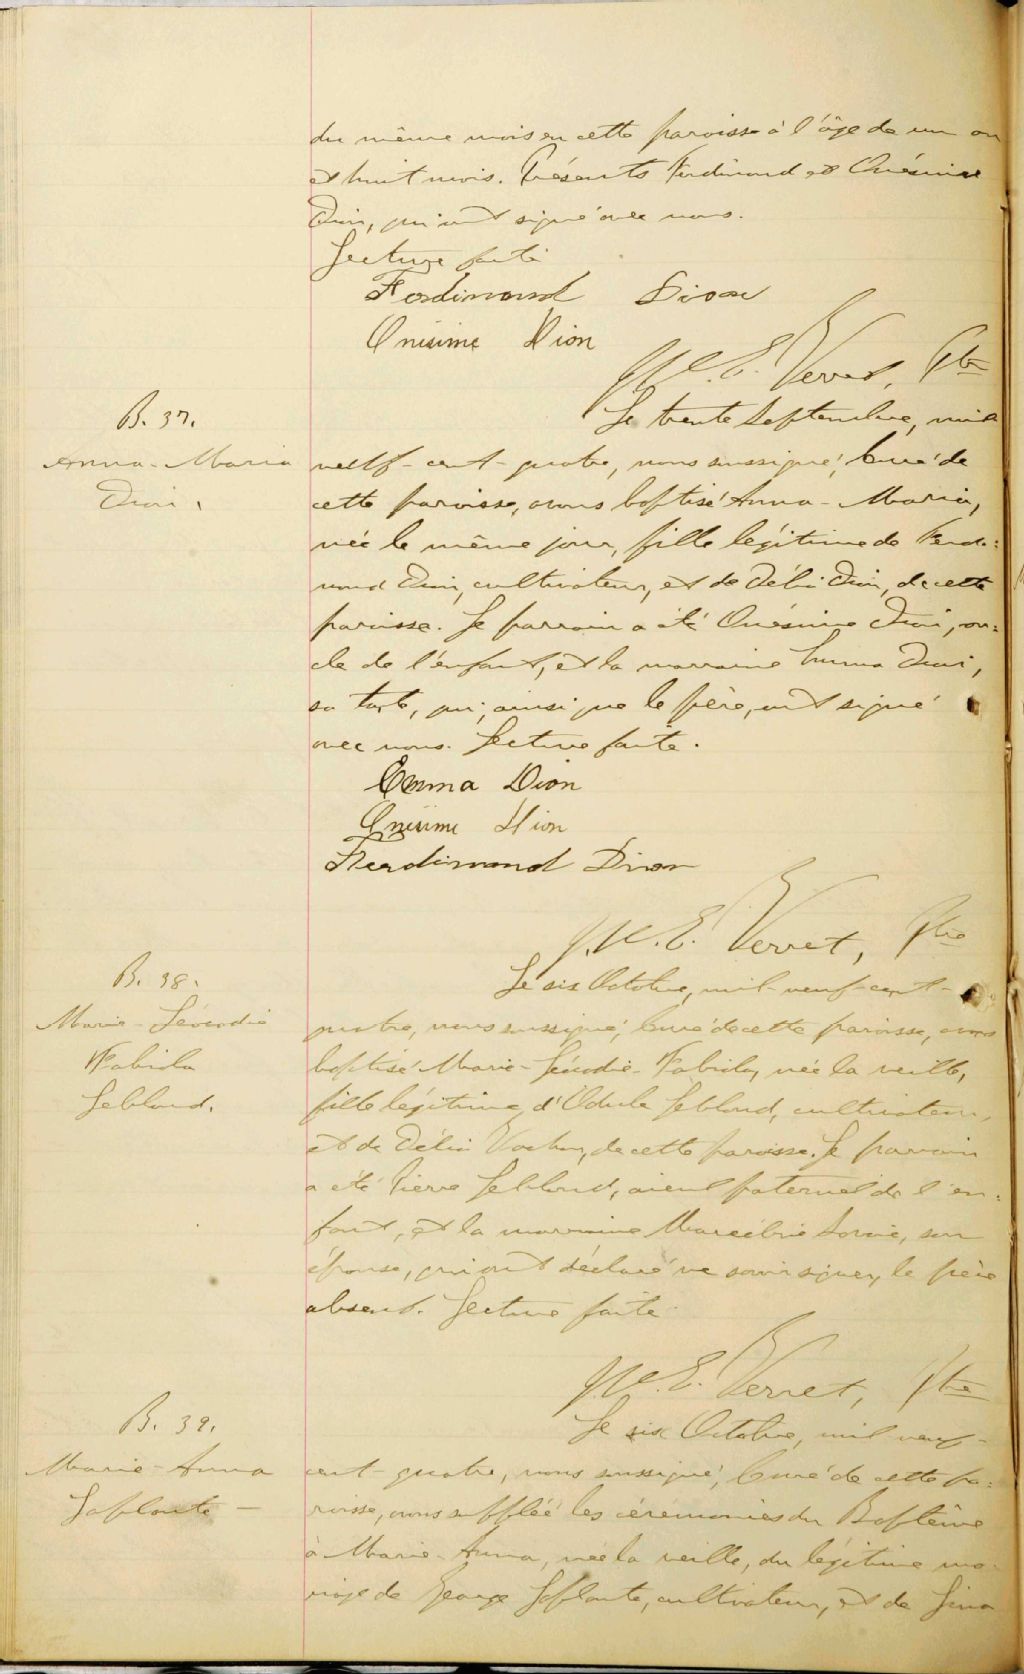 du même mois en cette paroisse à l'âge de un an
et huit mois. Présents Ferdinand et Onésime
Dion, qui ont signé avec nous.
Lecture faite
Ferdinand Dion
Onésime Dion
E. Verret, Ptre
B. 37.
Anna-Maria
Dion.
Le trente Septembre, mil
neuf-cent-quatre, nous soussigné, Curé de
cette paroisse, avons baptisé Anna-Maria,
née le même jour, fille légitime de Ferdi=
nand Dion, cultivateur, et de Délia Dion, de cette
paroisse. Le parrain a été Onésime Dion, on=
cle de l'enfant, et la marraine Emma Dion,
sa tante, qui, ainsi que le père, ont signé
avec nous. Lecture faite.
Emma Dion
Onésime Dion
Ferdinand Dion
E. Verret, Ptre
B. 38.
Marie-Léocadie
Fabiola
Leblond.
Le six Octobre, mil-neuf-cent-
quatre, nous soussigné, Curé de cette paroisse, avons
baptisé Marie-Léocadie-Fabiola, née la veille,
fille légitime d'Odule Leblond, cultivateur,
et de Délia Vachon, de cette paroisse. Le parrain
a été Pierre Leblond, aieul paternel de l'en=
fant, et la marraine son
épouse, qui ont déclaré ne savoir signer, le père
absent. Lecture faite.
E. Verret, Ptre
B. 39.
Marie-Anna
Laplante —
Le six Octobre, mil neuf-
cent-quatre, nous soussigné, Curé de cette pa=
roisse, avons suppléé les cérémonies du Baptême
à Marie-Anna, née la veille, du légitime ma=
riage de George Laplante, cultivateur, et de